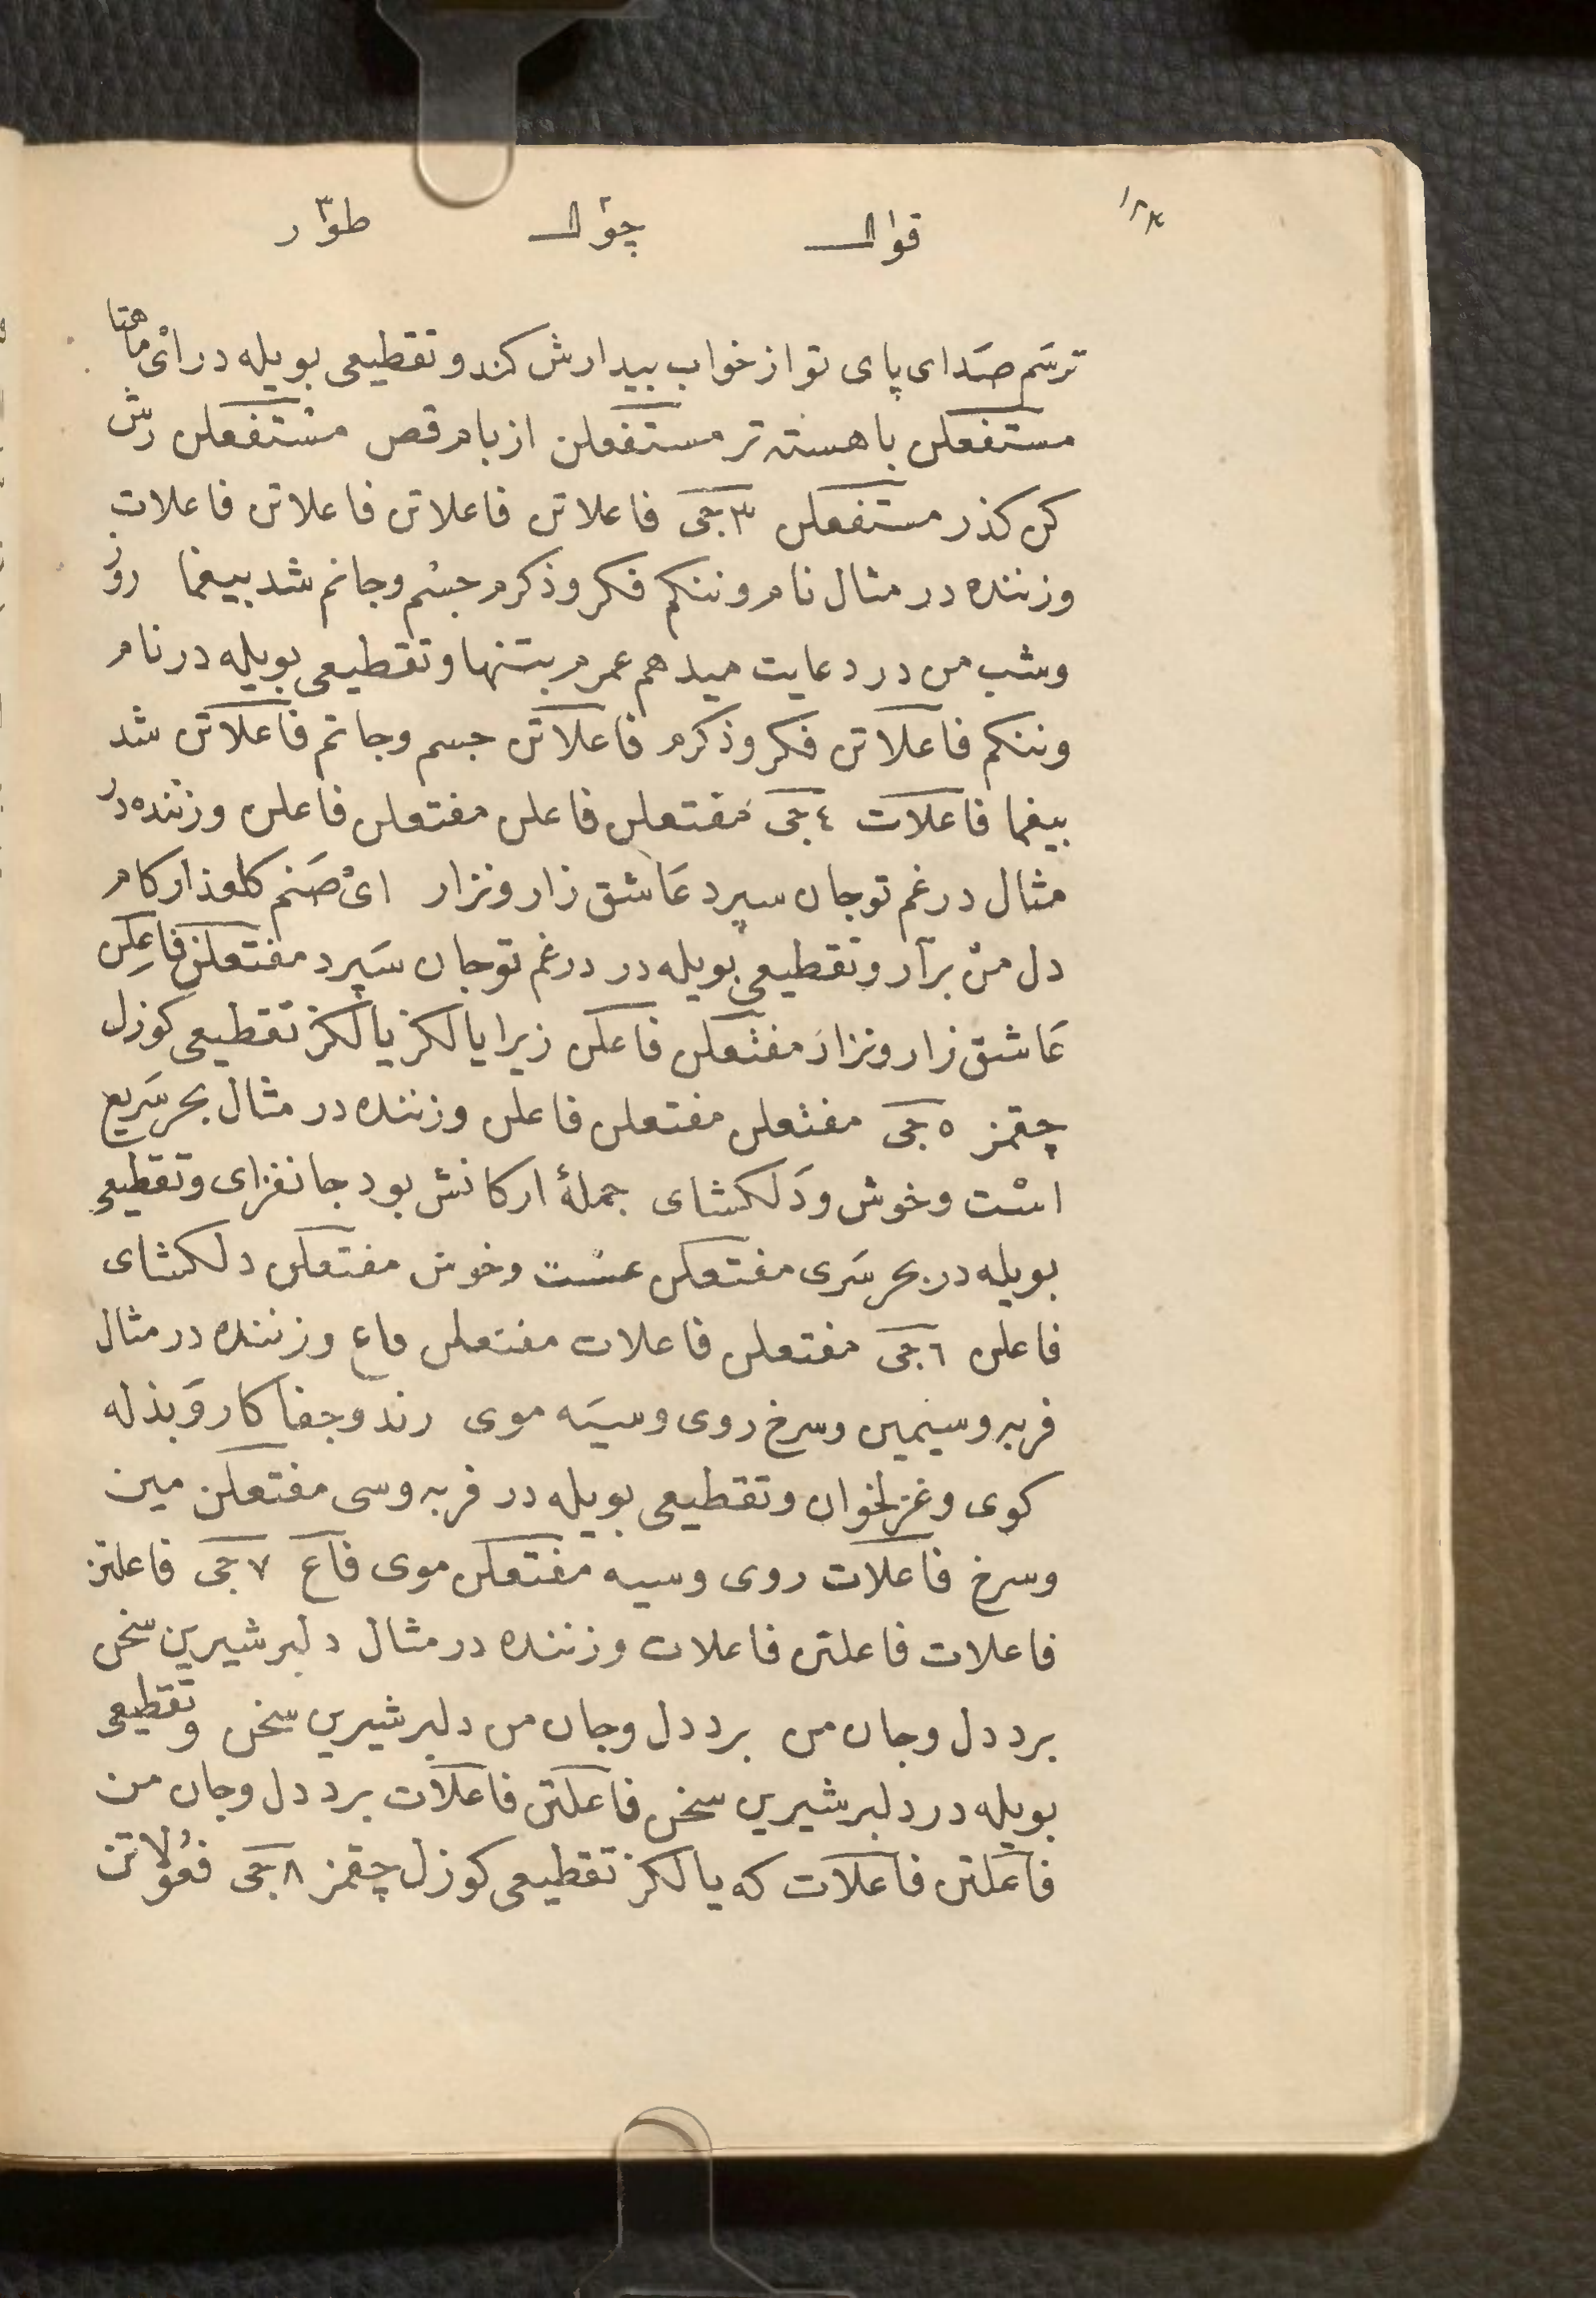 قوال چوال طوار
ترسَم صَدای پای تو از خواب بیدارش کند و تقطیعی بویله در ایْ ماهتا
مستفعلن باهسته تر مستفعلن از بام قص مستفعلن رش
کن کذر مستفعلن ٣ جی فاعلاتن فاعلاتن فاعلاتن فاعلات
وزننده در مثال نام وننکم فکر و ذکرم جسم و جانم شد بیغما روز
و شب من در دعایت میدهم عمرم بتنها و تقطیعی بویله در نام
وننکم فاعلاتن فکر و ذکرم فاعلاتن جسم و جانم فاعلاتن شد
بیغما فاعلات ٤ جی مفتعلن فاعلن مفتعلن فاعلن وزننده در
مثال در غم تو جان سپرد عَاشق زار و نزار ایْ صَنم کلعذار کام
دل منْ برآر و تقطیعی بویله در در غم تو جان سَپرد مفتعلن فاعِلن
عَاشق زار و نزار مفتعلن فاعلن زیرا یالکز یالکز تقطیعی کوزل
چقمز ٥ جی مفتعلن مفتعلن فاعلن وزننده در مثال بحر سَریع
اسْت و خوش و دَلکشای جملهٔ ارکانش بود جانفزای و تقطیعی
بویله در بحر سَری مفتعلن عسْت و خوش مفتعلن دلکشای
فاعلن ٦ جی مفتعلن فاعلات مفتعلن فاع وزننده در مثال
فربه و سیمین و سرخ روی و سیَه موی رند و جفا کار وَ بذله
کوی و غزلخوان و تقطیعی بویله در فربه و سی مفتعلن مین
و سرخ فاعلات روی و سیه مفتعلن موی فاع ٧ جی فاعلتن
فاعلات فاعلتن فاعلات وزننده در مثال دلبر شیرین سخن
برد دل و جان من برد دل و جان من دلبر شیرین سخن و تقطیعی
بویله در دلبر شیرین سخن فاعلتن فاعلات برد دل و جان من
فاعلتن فاعلات که یالکز تقطیعی کوزل چقمز ٨ جی فعُولاتن